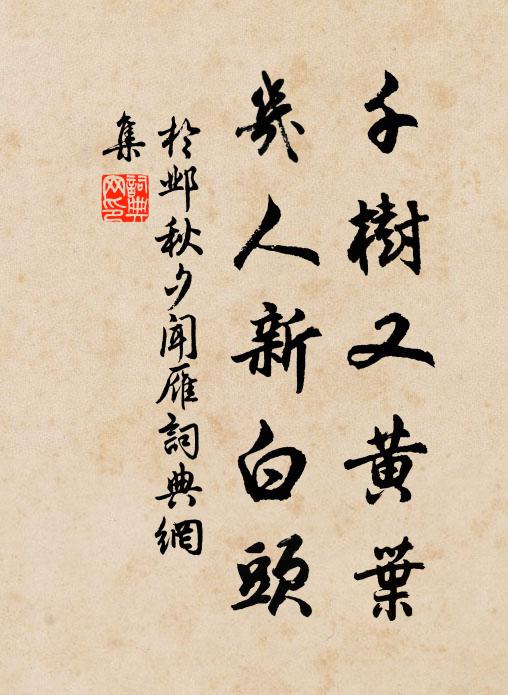 千樹又黃葉
幾人新白頭
於鄴秋夕聞雁詞典網
集
詞典
网印